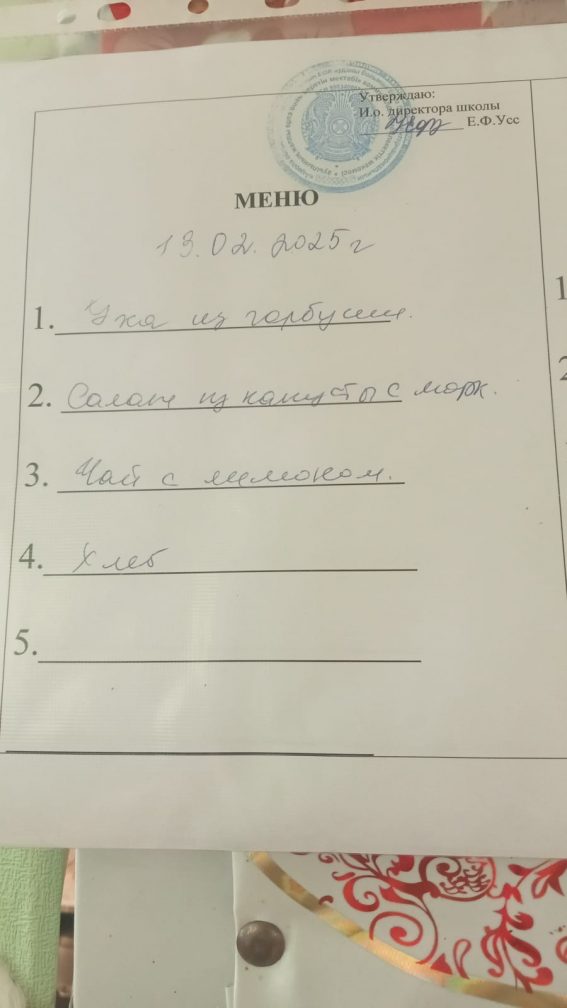 Утверждаю:
И.о. директора школы
Е.Ф.Усс
МЕНЮ
13.02.2025 г
1. Уха из горбуши.
2. Салат из капусты с морк.
3. Чай с лимоном.
4. Хлеб
5.
1
2